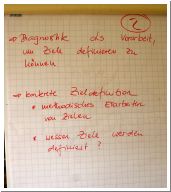 2
→ Diagnostik als Vorarbeit,
um Ziele definieren zu
können
→ konkrete Zieldefinition
• methodisches Erarbeiten
von Zielen
• wessen Ziele werden
definiert?